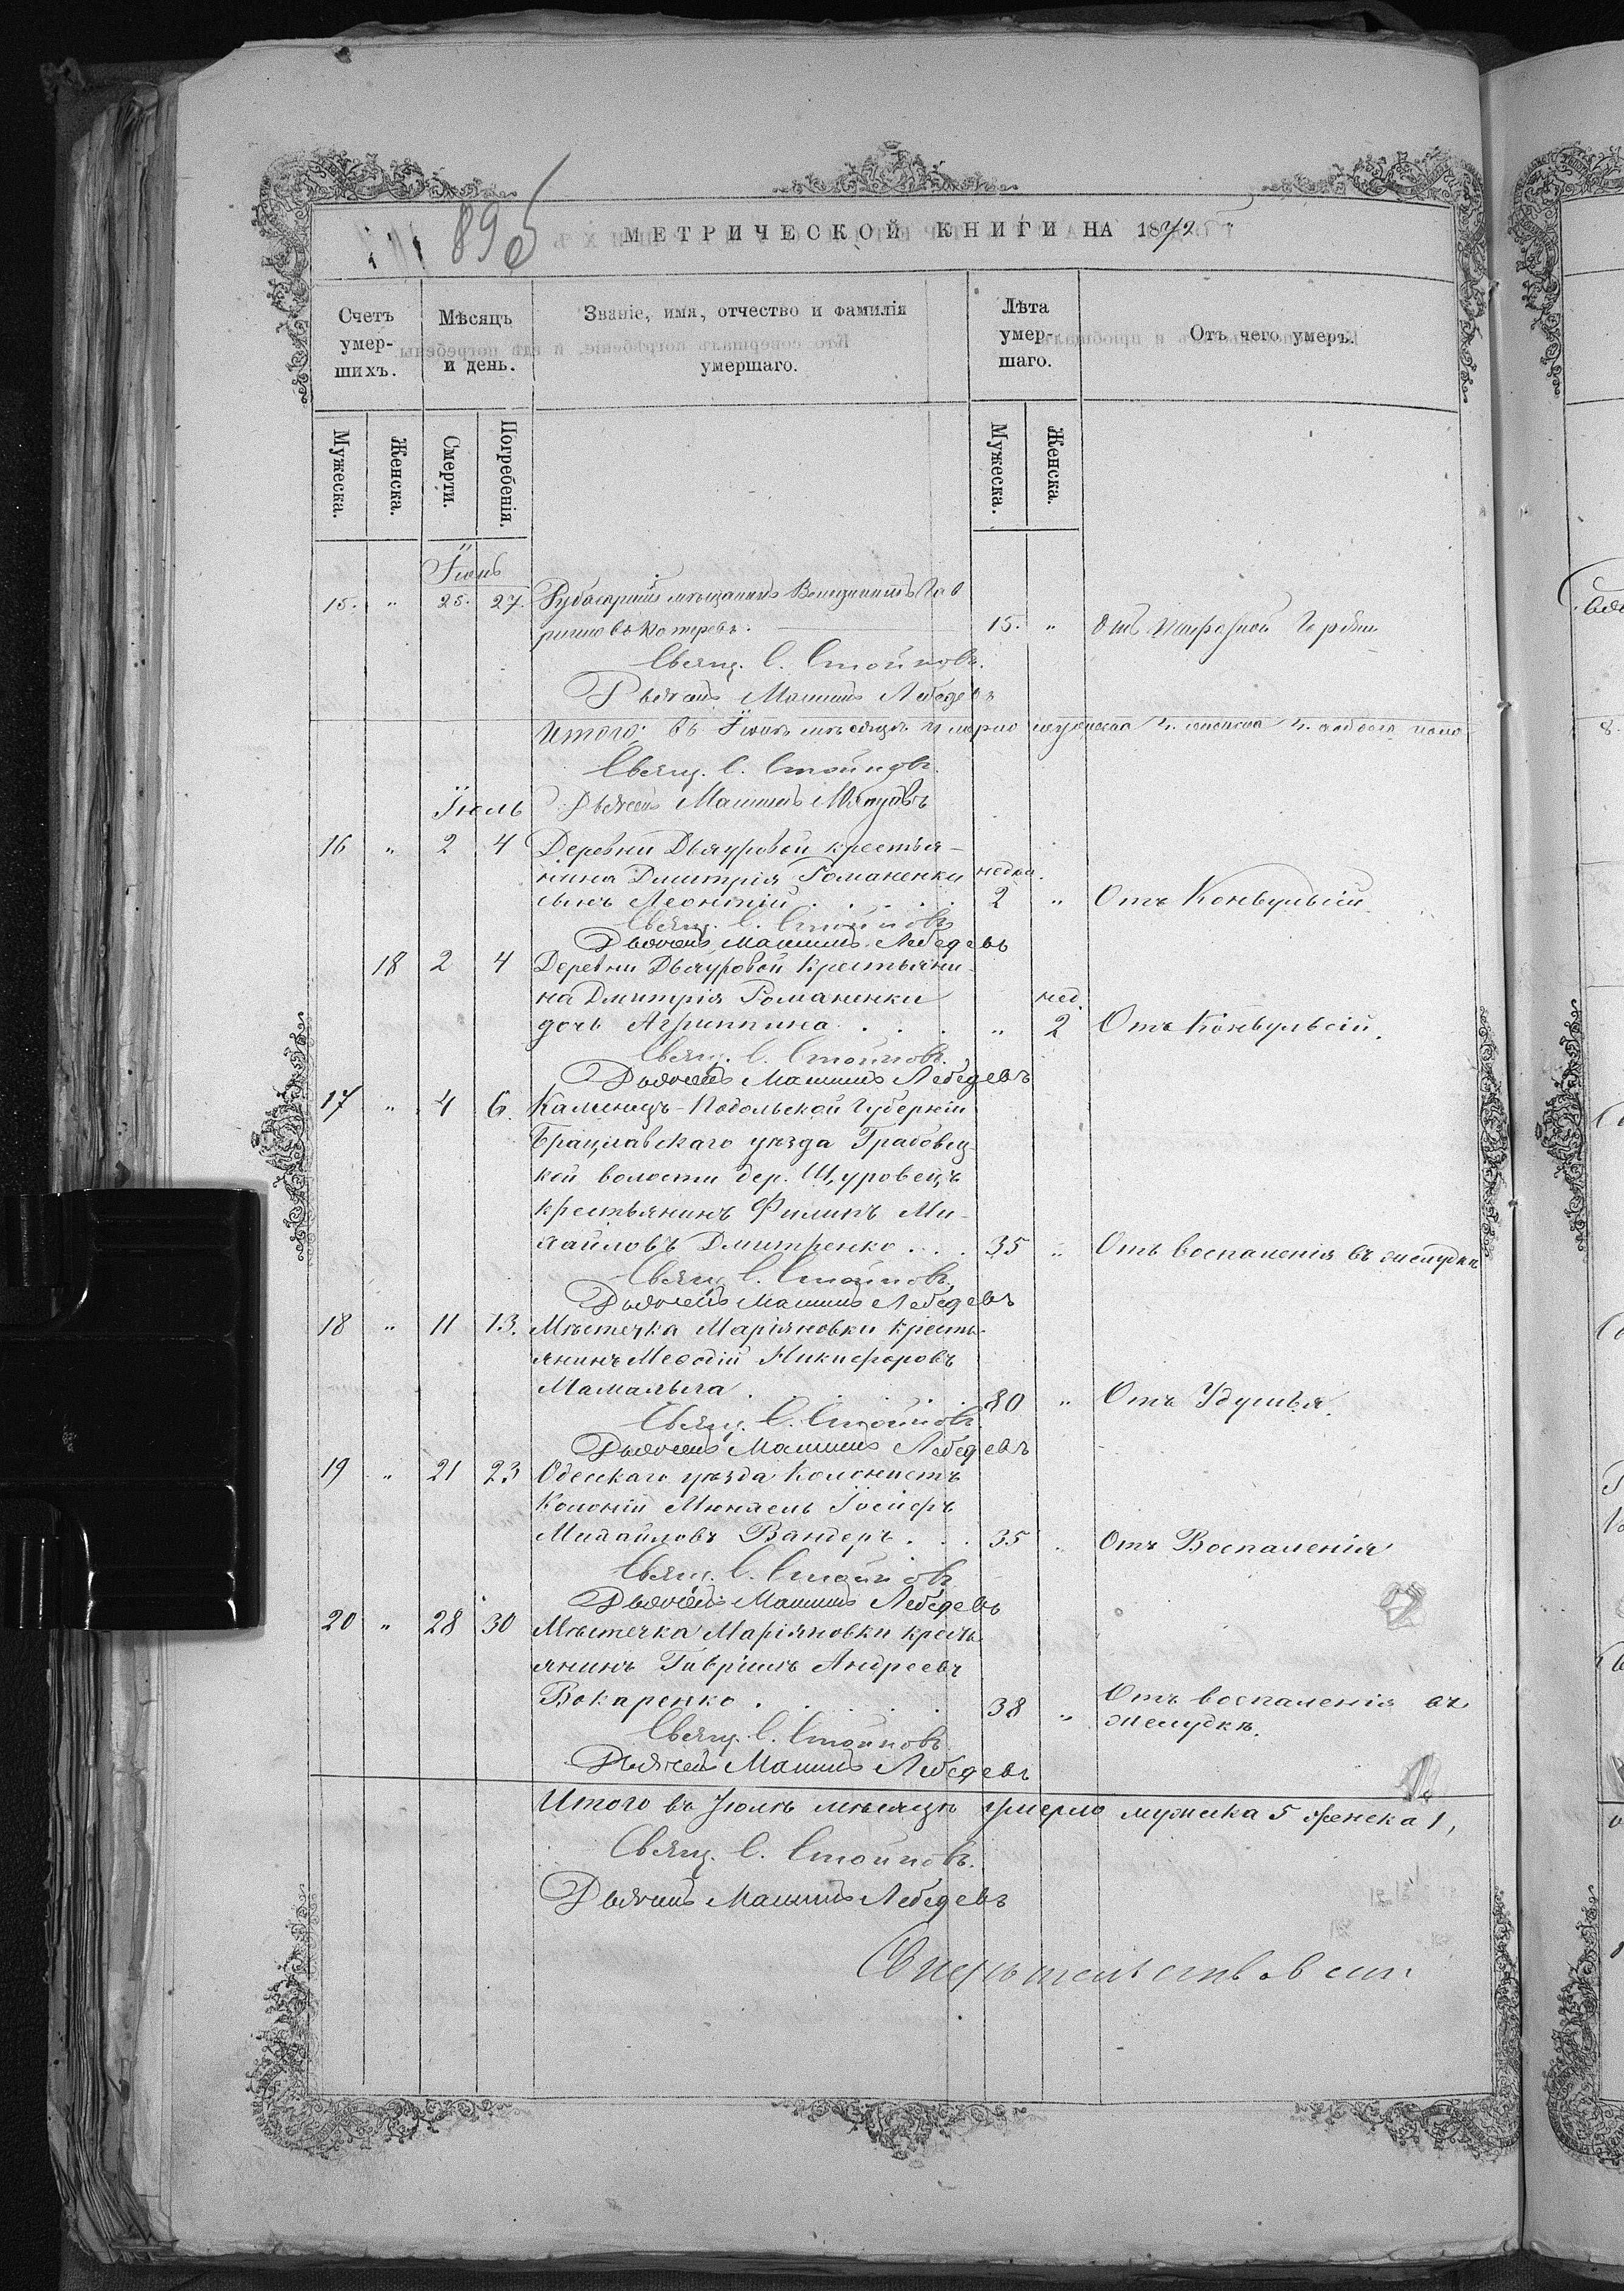 895
МЕТРИЧЕСКОЙ КНИГИ НА 1872
Счетъ умер-шихъ.
Мѣсяцъ и день.
Званіе, имя, отчество и фамилія умершаго.
Лѣта умер-шаго.
Отъ чего умеръ.
Мужеска.
Женска.
Смерти.
Погребенія.
Мужеска.
Женска.
Іюнь
15. " 25. 27. мѣщанинъ
15. " Отъ
Свящ. С. Стойковъ.
Дьячекъ Лебедевъ
Итого въ Іюнѣ мѣсяцѣ умерло
Свящ. С. Стойковъ.
Іюль Дьячекъ
16 " 2 4 Деревни крестья-
нина Дмитрія Романенки недѣл.
сынъ Леонтій . . . . 2 " Отъ Конвульсій
Свящ. С. Стойковъ
Дьячекъ Лебедевъ
18 2 4 Деревни Крестьяни-
на Дмитрія Романенки нед.
дочь Агриппина . . . " 2 Отъ Конвульсій.
Свящ. С. Стойковъ.
Дьячекъ Лебедевъ
17 " 4 6. Каменецъ-Подольской Губерніи
Брацлавскаго уѣзда Грабовец-
кой волости дер. Щуровецъ
крестьянинъ Филипъ Ми-
хайловъ Дмитренко . . . 35 " Отъ воспаленія въ желудкѣ
Свящ. С. Стойковъ.
Дьячекъ Лебедевъ
18 " 11 13. Мѣстечка Маріяновки кресть-
янинъ Меѳодій Никифоровъ
Мамалыга . . . . . . 80 " Отъ Удушья.
Свящ. С. Стойковъ.
Дьячекъ Лебедевъ
19 " 21 23 Одесскаго уѣзда Колонистъ
Колоніи Іосифъ
Михайловъ Вандеръ . . . 35 " Отъ Воспаленія
Свящ. С. Стойковъ
Дьячекъ Лебедевъ
20 " 28 30 Мѣстечка Маріяновки кресть-
янинъ Гавріилъ Андреевъ
Бокаренко . . . . . 38 " Отъ воспаленія въ
желудкѣ.
Свящ. С. Стойковъ
Дьячекъ Лебедевъ
Итого въ Іюлѣ мѣсяцѣ умерло мужеска 5 женска 1,
Свящ. С. Стойковъ.
Дьячекъ Лебедевъ